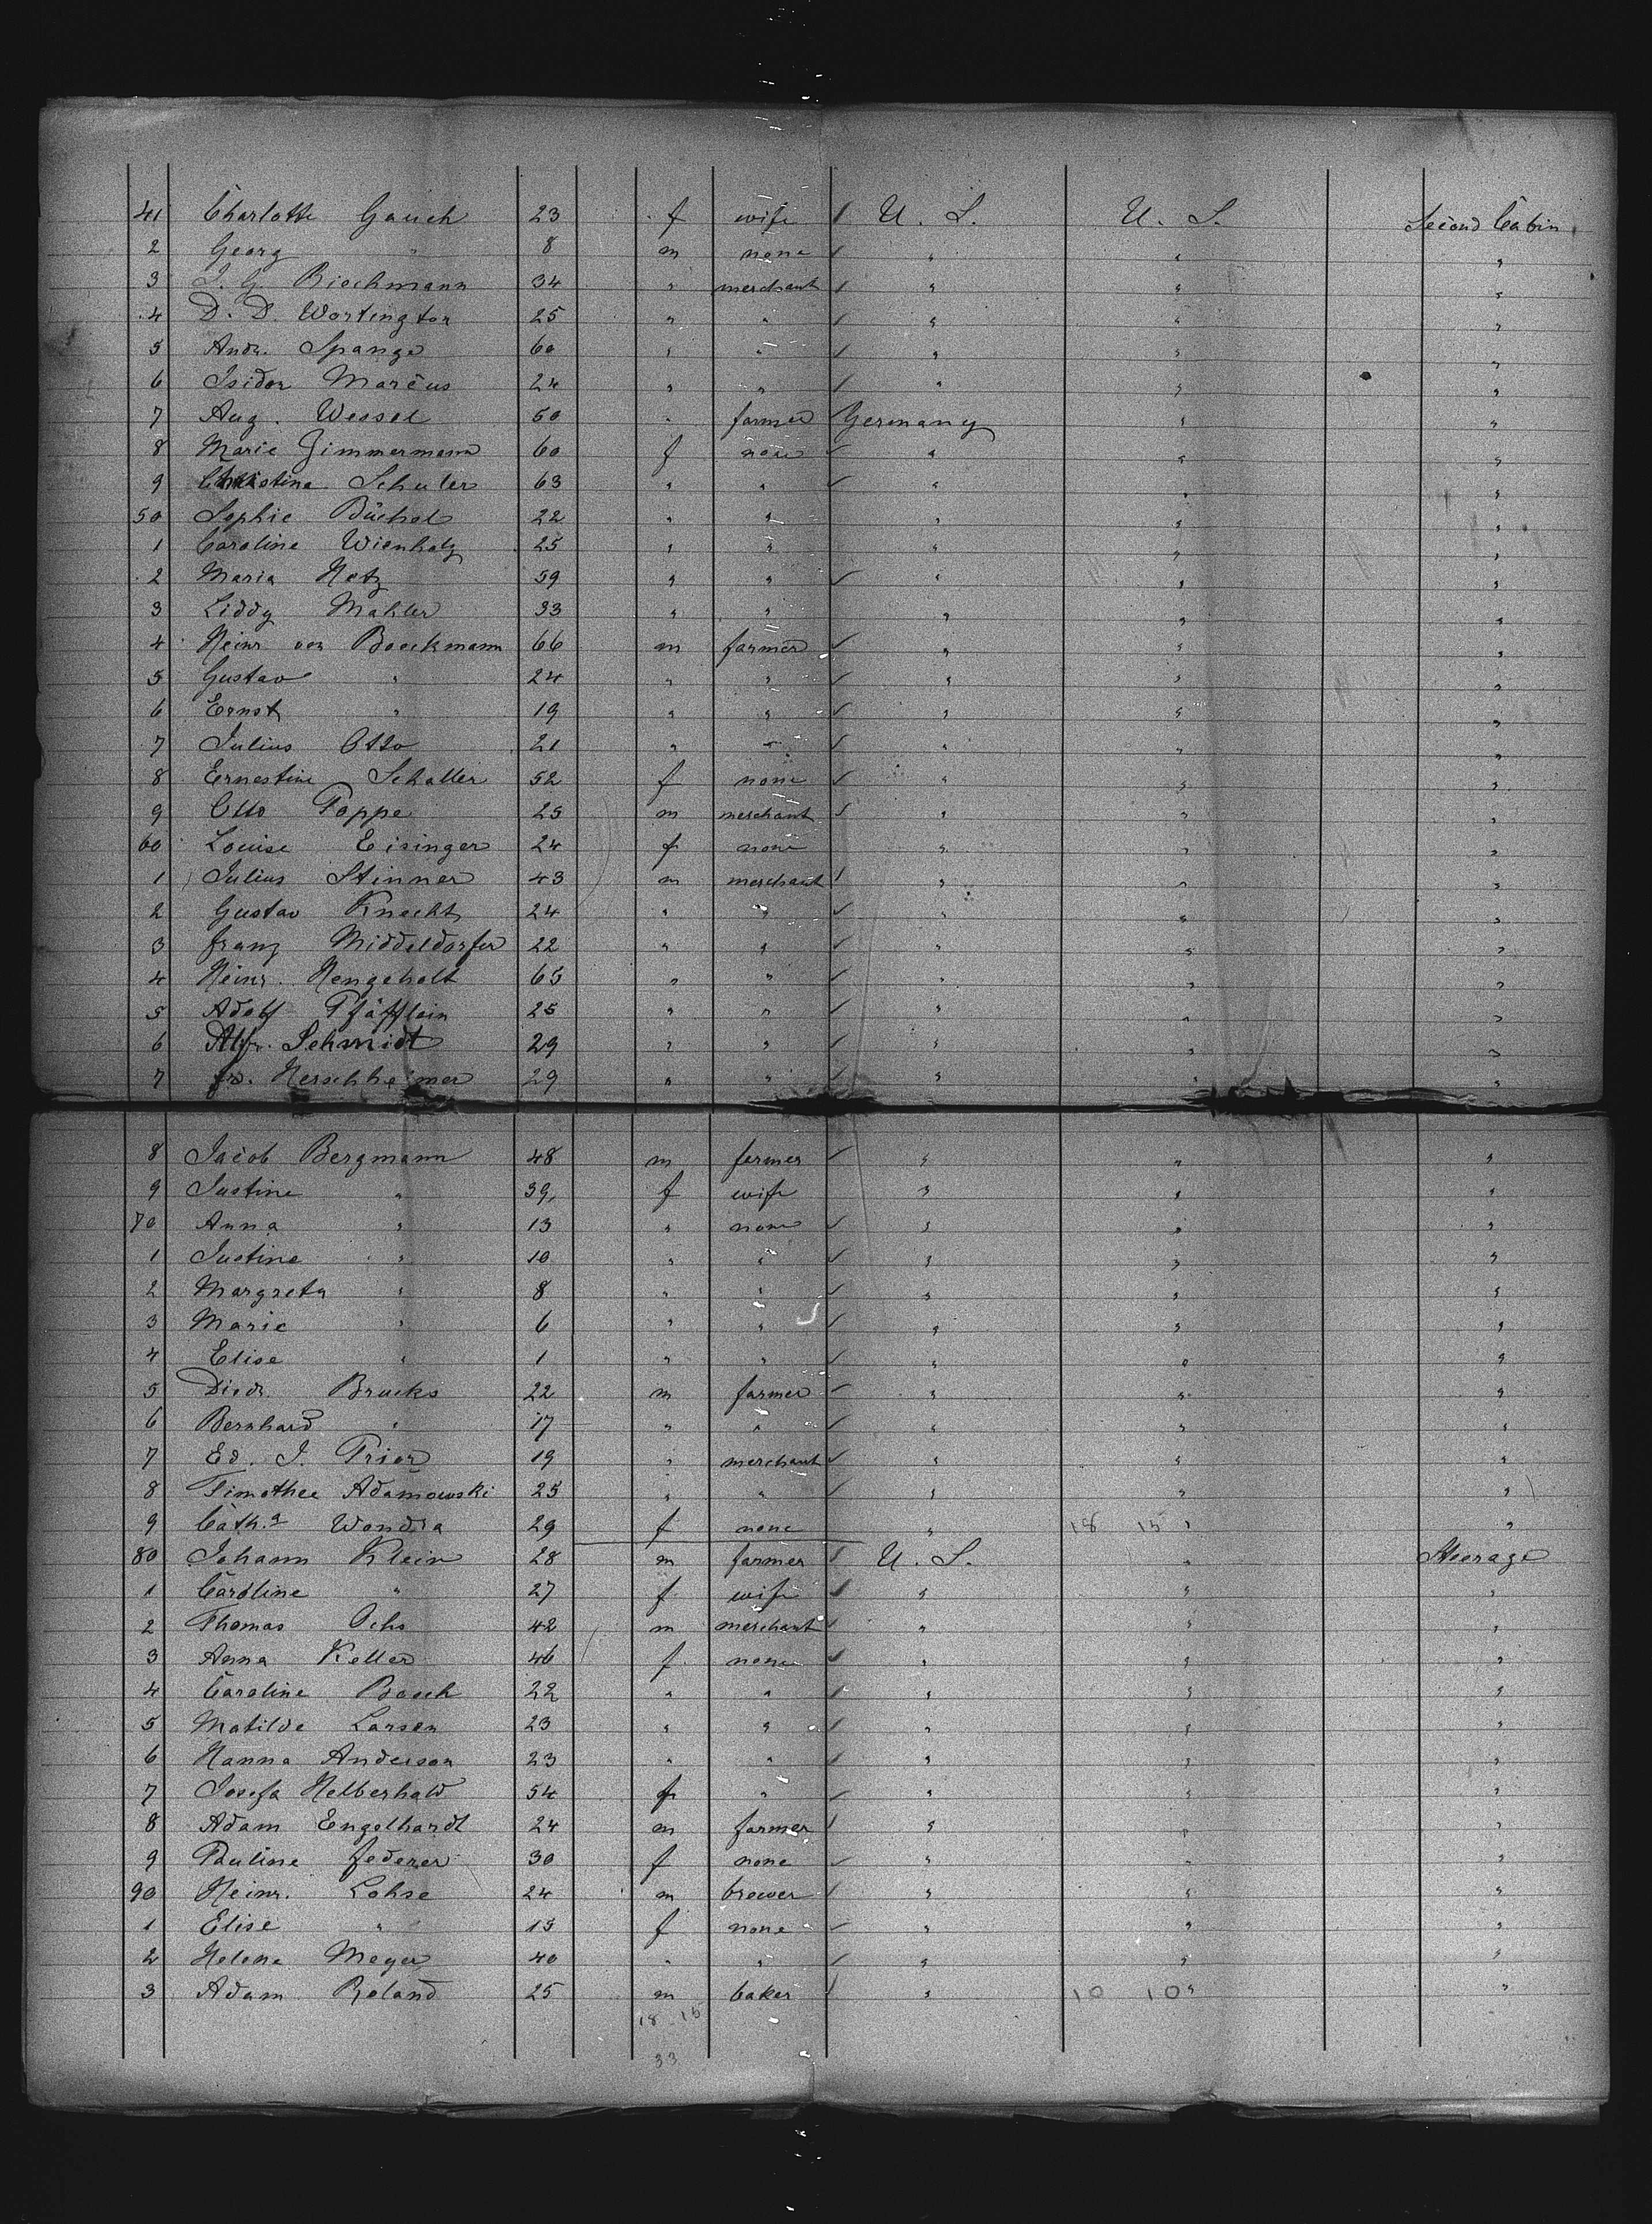 41 Charlotte Gauch 23 f wife U. S. U. S. Second Cabin
2 Georg " 8 m none " " "
3 J. G. Biechmann 34 " merchant " " "
4 D. D. Wortington 25 " " " " "
5 Andr. Spange 60 " " " " "
6 Isidor Marcus 24 " " " " "
7 Aug. Wessel 50 " farmer Germany " "
8 Marie Zimmermann 60 f none " " "
9 Christine Schuler 63 " " " " "
50 Sophie Büchel 22 " " " " "
1 Caroline Wienholz 25 " " " " "
2 Maria Netz 59 " " " " "
3 Liddy Mahler 33 " " " " "
4 Heinr. von Boeckmann 66 m farmer " " "
5 Gustav " 24 " " " " "
6 Ernst " 19 " " " " "
7 Julius Otto 21 " " " " "
8 Ernestine Schaller 52 f none " " "
9 Otto Poppe 25 m merchant " " "
60 Louise Eisinger 24 f none " " "
1 Julius Stinner 43 m merchant " " "
2 Gustav Knecht 24 " " " " "
3 Franz Middeldorfer 22 " " " " "
4 Heinr. Hengeholt 65 " " " " "
5 Adolf Pfäfflein 25 " " " " "
6 Alfr. Schmidt 29 " " " " "
7 Fr. Herschheimer 29 " " " " "
8 Jacob Bergmann 48 m farmer " " "
9 Justine " 39 f wife " " "
70 Anna " 13 " none " " "
1 Justine " 10 " " " " "
2 Margreta " 8 " " " " "
3 Marie " 6 " " " " "
4 Elise " 1 " " " " "
5 Diedr. Brucks 22 m farmer " " "
6 Bernhard " 17 " " " " "
7 Ed. J. Prior 19 " merchant " " "
8 Timothee Adamowski 25 " " " " "
9 Cath.a Wondra 29 f none " 18 15 " "
80 Johann Klein 28 m farmer U. S. " Steerage
1 Caroline " 27 f wife " " "
2 Thomas Ochs 42 m merchant " " "
3 Anna Keller 46 f none " " "
4 Caroline Bosch 22 " " " " "
5 Matilde Larsen 23 " " " " "
6 Hanna Anderson 23 " " " " "
7 Josefa Helberhald 54 f " " " "
8 Adam Engelhardt 24 m farmer " " "
9 Pauline Federer 30 f none " " "
90 Heinr. Lohse 24 m brewer " " "
1 Elise " 13 f none " " "
2 Helene Meyer 40 " " " " "
3 Adam Roland 25 m baker " 10 10 " "
18 15
33